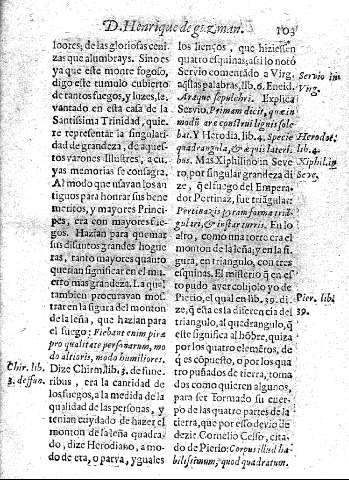 D. Henrique de guzman. 103
loores, de las gloriosas ceni
zas que alumbrays. Sino es
ya que este monte fogoso,
digo este tumulo cubierto
de tantos fuegos, y luzes, le
vantado en esta casa de la
Santissima Trinidad, quie
re representar la singulari
dad de grandeza, de aques-
tos varones Illustres, a cu,
yas memorias se consagra.
Al modo que usavan los an
tiguos para honrar sus bene
meritos, y mayores Princi
pes, era con mayores fue-
gos. Hazian para quemar
sus difuntos grandes hogue
ras, tanto mayores quanto
querian significar en el mu
erto mas grandeza. La qual
tambien procuravan mos,
trar en la figura del monton
de la leña, que hazian para
el fuego: Fiebant enim piræ
pro qualitate personarum, mo
do altioris, modo humiliores.
Chir. lib.
3. de fun.
Dize Chirm, lib. 3. de fune-
ribus, era la cantidad de
los fuegos, a la medida de la
qualidad de las personas, y
tenian cuydado de hazer el
monton de la leña quadra-
do, dize Herodiano, a mo-
do de era, o parva, yguales
los lienços, que hiziessen
quatro esquinas; assi lo notò
Servio comentado a Virg.
Servio in
Virg.
aquellas palabras, lib. 6. Eneid.
Aræque sepulchri. Explica
Servio, Primam dicit, quæ in
modũ aræ construi lignis sole-
bat. Y Herodia, lib. 4. Specie
Herodot.
lib. 4.
quadrangula, & æquis lateri.
bus. Mas Xiphilino in Seve
Xiphilin
Seve.
ro, por singular grandeza di
ze, q̃ el fuego del Empera-
dor Pertinaz, fue triãgular:
Pertinazis pyram forma triã-
gulari, & instar turris. En lo
alto, como una torre era el
monton de la leña, y en la fi-
gura, en triangulo, con tres
esquinas. El misterio q̃ en es
to pudo aver colijolo yo de
Pierio, el qual en lib. 39. di-
Pier. libi
39.
ze, q̃ esta es la diferencia del
triangulo, al quadrangulo, q̃
este significa al hõbre, quiza
por los quatro elemẽtos, de
q̃ es cõpuesto, o por los qua
tro puñados de tierra, toma
dos como quieren algunos,
para ser formado su cuer-
po de las quatro partes de la
tierra, que por esso devio de
dezir Cornelio Celso, cita-
do de Pierio: Corpus illud ha
bilissimum, quod quadratum.